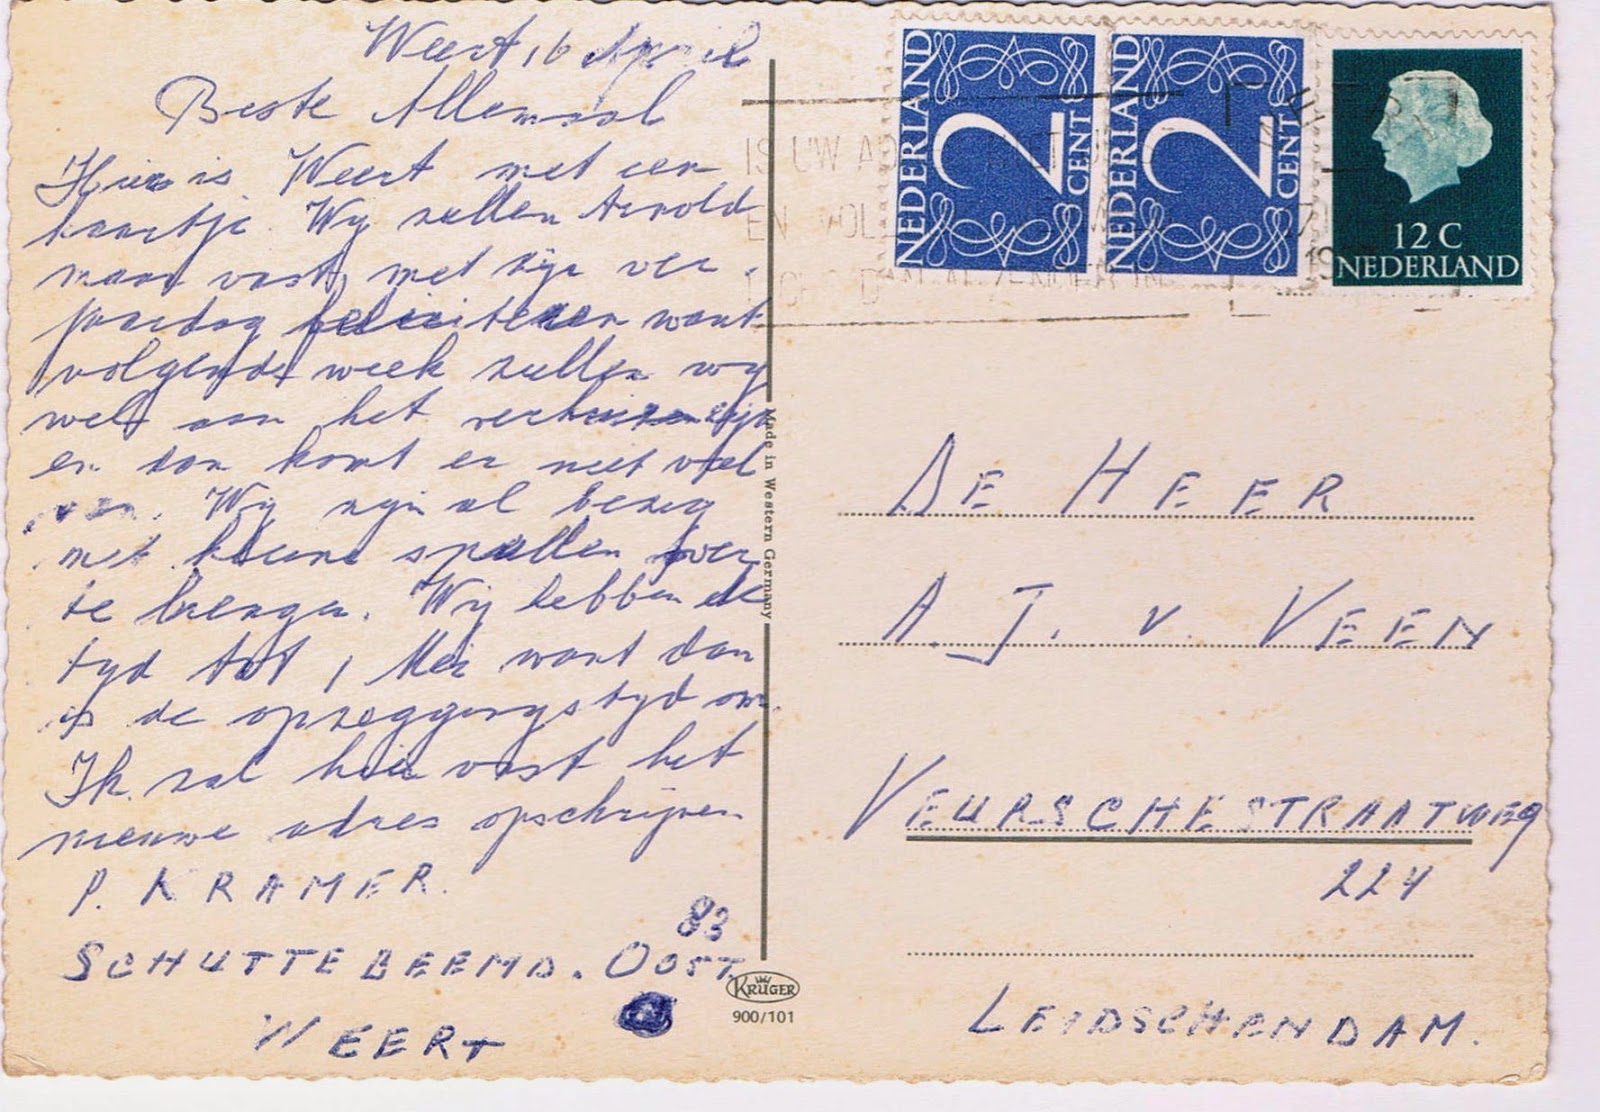 Weert 16 April
Beste Allemaal
Hier is Weert met een
kaartje. Wy zullen Arnold
maar vast met zijn ver
jaardag feliciteren want
volgende week zullen wy
wel aan het verhuizen zijn
en dan komt er niet veel
van. Wy zijn al bezig
met kleine spullen over
te brengen. Wy hebben de
tyd tot 1 Mei want dan
is de opzeggingstyd om.
Ik zal hier vast het
nieuwe adres opschrijven
P. KRAMER.
83
SCHUTTEBEEMD. OOST.
WEERT
Made in Western Germany
KRÜGER
900/101
NEDERLAND 2 CENT
NEDERLAND 2 CENT
12 C
NEDERLAND
IS UW AD
EN VOL
DE HEER
A. J. v. VEEN
VEURSCHESTRAATWEG
224
LEIDSCHENDAM.